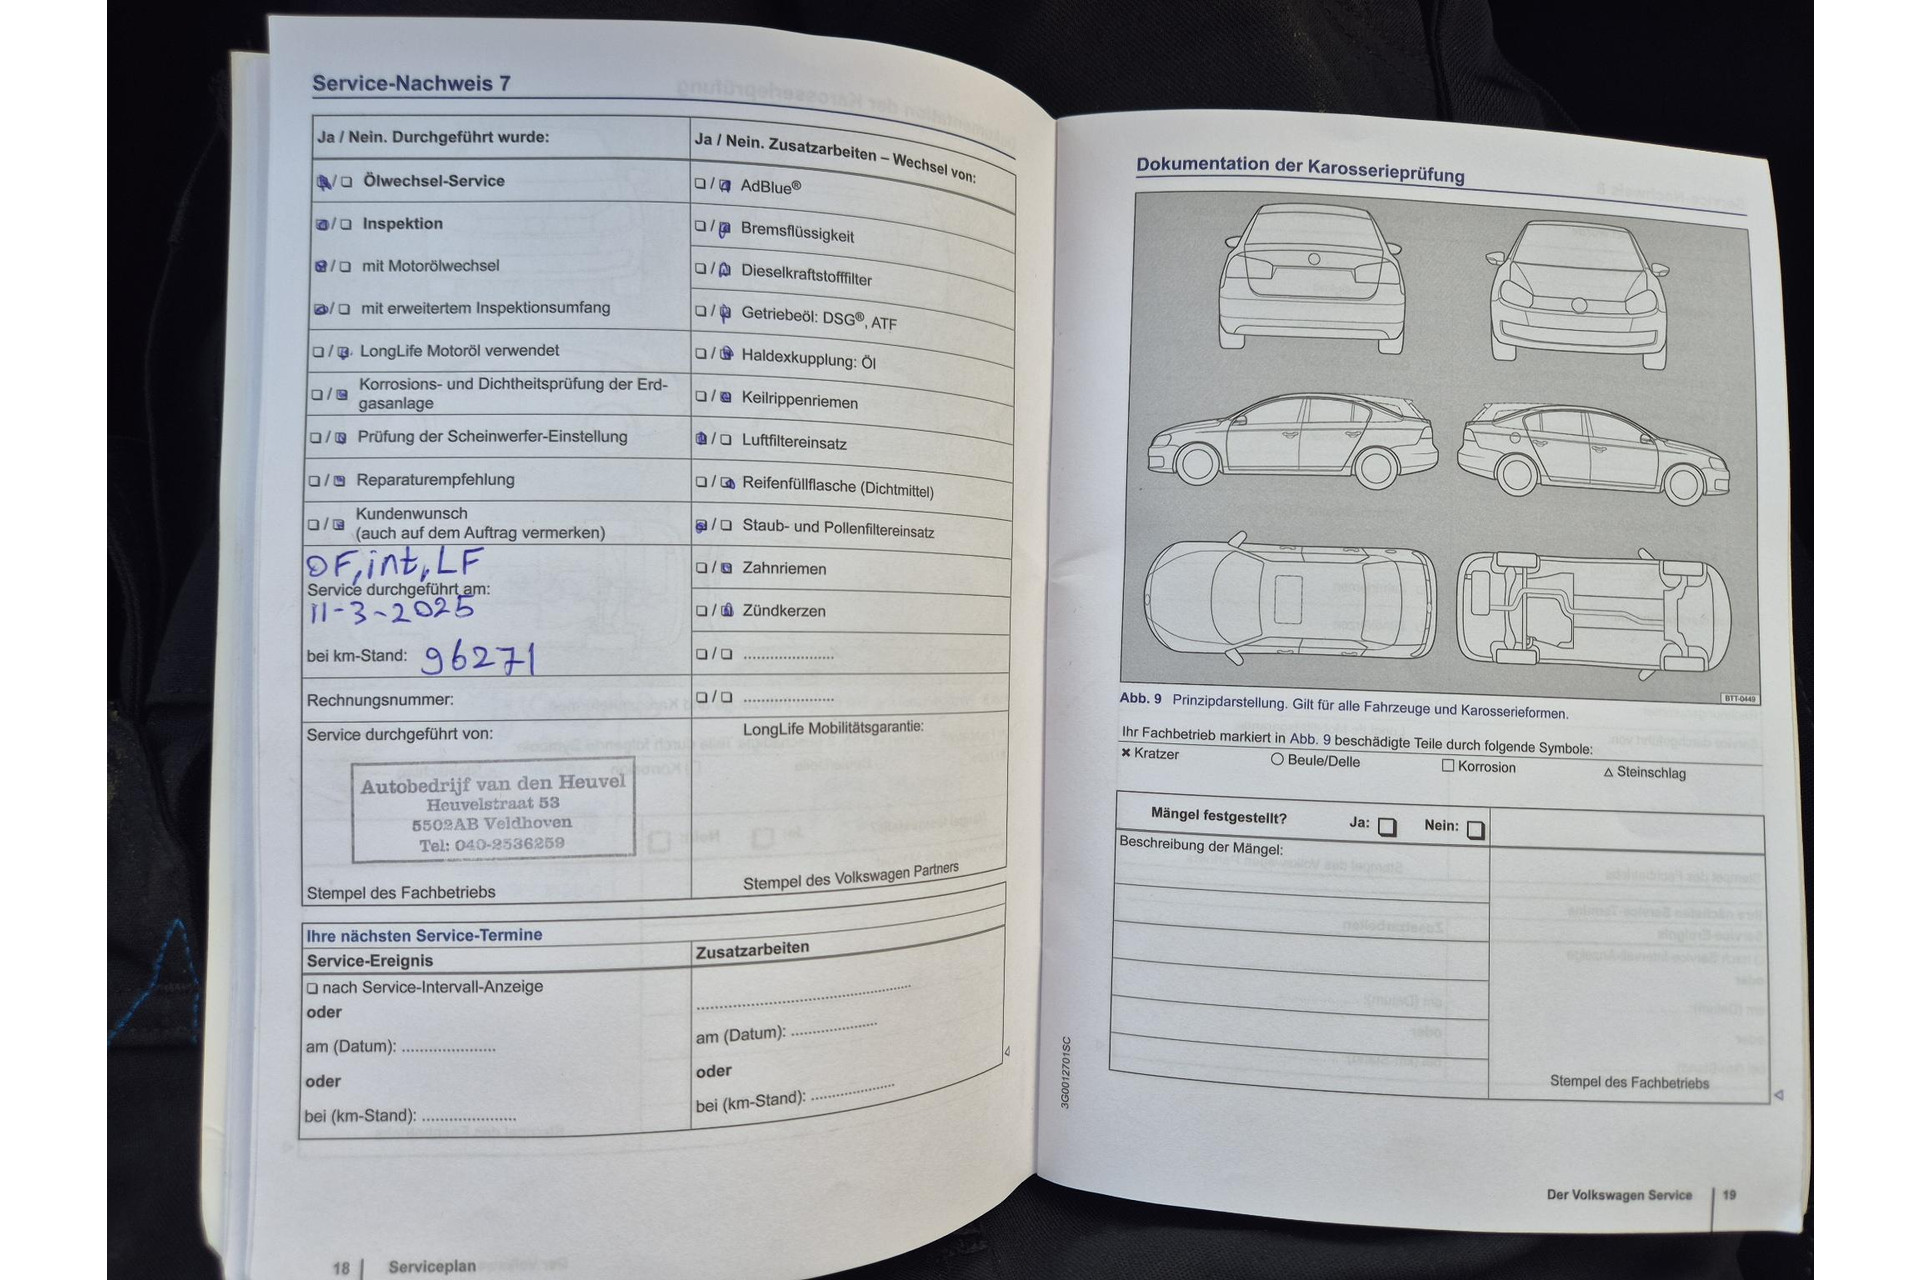 Service-Nachweis 7
Ja / Nein. Durchgeführt wurde:
Ölwechsel-Service
Inspektion
mit Motorölwechsel
mit erweitertem Inspektionsumfang
LongLife Motoröl verwendet
Korrosions- und Dichtheitsprüfung der Erd-
gasanlage
Prüfung der Scheinwerfer-Einstellung
Reparaturempfehlung
Kundenwunsch
(auch auf dem Auftrag vermerken)
OF, int, LF
Service durchgeführt am:
11-3-2025
bei km-Stand: 96271
Rechnungsnummer:
Service durchgeführt von:
Autobedrijf van den Heuvel
Heuvelstraat 53
5502AB Veldhoven
Tel: 040-2536259
Stempel des Fachbetriebs
Ja / Nein. Zusatzarbeiten – Wechsel von:
AdBlue®
Bremsflüssigkeit
Dieselkraftstofffilter
Getriebeöl: DSG®, ATF
Haldexkupplung: Öl
Keilrippenriemen
Luftfiltereinsatz
Reifenfüllflasche (Dichtmittel)
Staub- und Pollenfiltereinsatz
Zahnriemen
Zündkerzen
LongLife Mobilitätsgarantie:
Stempel des Volkswagen Partners
Ihre nächsten Service-Termine
Service-Ereignis
nach Service-Intervall-Anzeige
oder
am (Datum): ....................
oder
bei (km-Stand): ....................
Zusatzarbeiten
am (Datum): ....................
oder
bei (km-Stand): ....................
18 | Serviceplan
Dokumentation der Karosserieprüfung
BTT-0449
Abb. 9 Prinzipdarstellung. Gilt für alle Fahrzeuge und Karosserieformen.
Ihr Fachbetrieb markiert in Abb. 9 beschädigte Teile durch folgende Symbole:
× Kratzer
○ Beule/Delle
□ Korrosion
△ Steinschlag
Mängel festgestellt? Ja: Nein:
Beschreibung der Mängel:
Stempel des Fachbetriebs
3G0012701SC
Der Volkswagen Service | 19